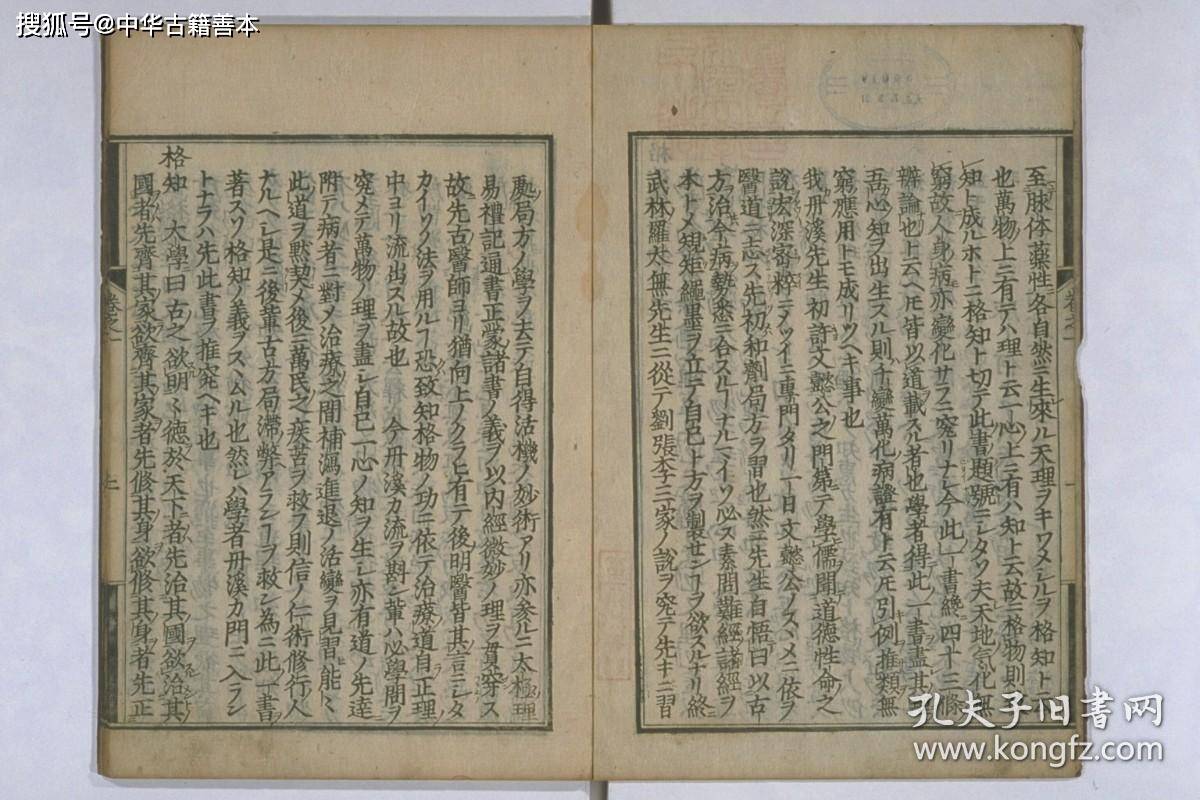 搜狐号@中华古籍善本
至脉体藥性各自然ニ生來ル天理ヲキワメシルヲ格知ト云
也萬物ノ上ニ有テハ理ト云一心上ニ有ハ知ト云故ニ格物則
知ト成ルホトニ格知ト切テ此書題號ニシタソ夫天地ノ气化無
窮故人身ノ病亦變化サラニ窮リナシ今此ノ一書纔四十三條
辨論也上云ヘ𪜈皆以道載スル者也學者得此一書盡其
吾心知ヲ出生スル則千變萬化病證有ト云𪜈引例推類無
窮應用トモ成リツヘキ事也
我丹溪先生初許文懿公之門第テ學儒聞道德性命之
說宏深密粹ニメツイニ專門タリ一日文懿公ノスヽメニ依テ
醫道ニ志ス先初和劑局方ヲ習也然ニ先生自悟曰以古
方治今病勢悉ニ合スルヿナルマイソ必ス素問難經諸經ヲ
本トメ規矩繩墨ヲ立テ自己ト方ヲ製センヿヲ欲スルナリ終
武林羅太無先生ニ從テ劉張李三家ノ說ヲ究テ先キニ習
處局方ノ學ヲ去テ自得活機ノ妙術アリ亦参ルニ太極理
易禮記通書正蒙諸書ノ義ヲ以内經微妙ノ理ヲ貫穿ス
故先古醫師ヨリ猶向上ノクラヒ有テ後明醫皆其言ニシタ
カイソノ法ヲ用ルヿ恐致知格物ノ功ニ依テ治療道自正理
中ヨリ流出スル故也 今丹溪カ流ヲ斟ン輩ハ必學問ヲ
究メテ萬物ノ理ヲ盡シ自己一心ノ知ヲ生シ亦有道ノ先達
附テ病者ニ對メ治療之間補瀉進退ノ活變ヲ見習能ミ
此道ヲ黙契メ後ニ萬民之疾苦ヲ救フ則信ノ仁術修行人
ナルヘシ是ニ後輩古方局滯ノ弊アランヿヲ救ン為ニ此一書
著スソ格知ノ義ヲスヽムル也然レハ學者丹溪カ門ニ入ラン
トナラハ先此書ヲ推究ヘキ也
格知 大學曰古之欲明ミ德於天下者先治其國欲治其
國者先齊其家欲齊其家者先修其身欲修其身者先正
卷之一
孔夫子旧书网
www.kongfz.com